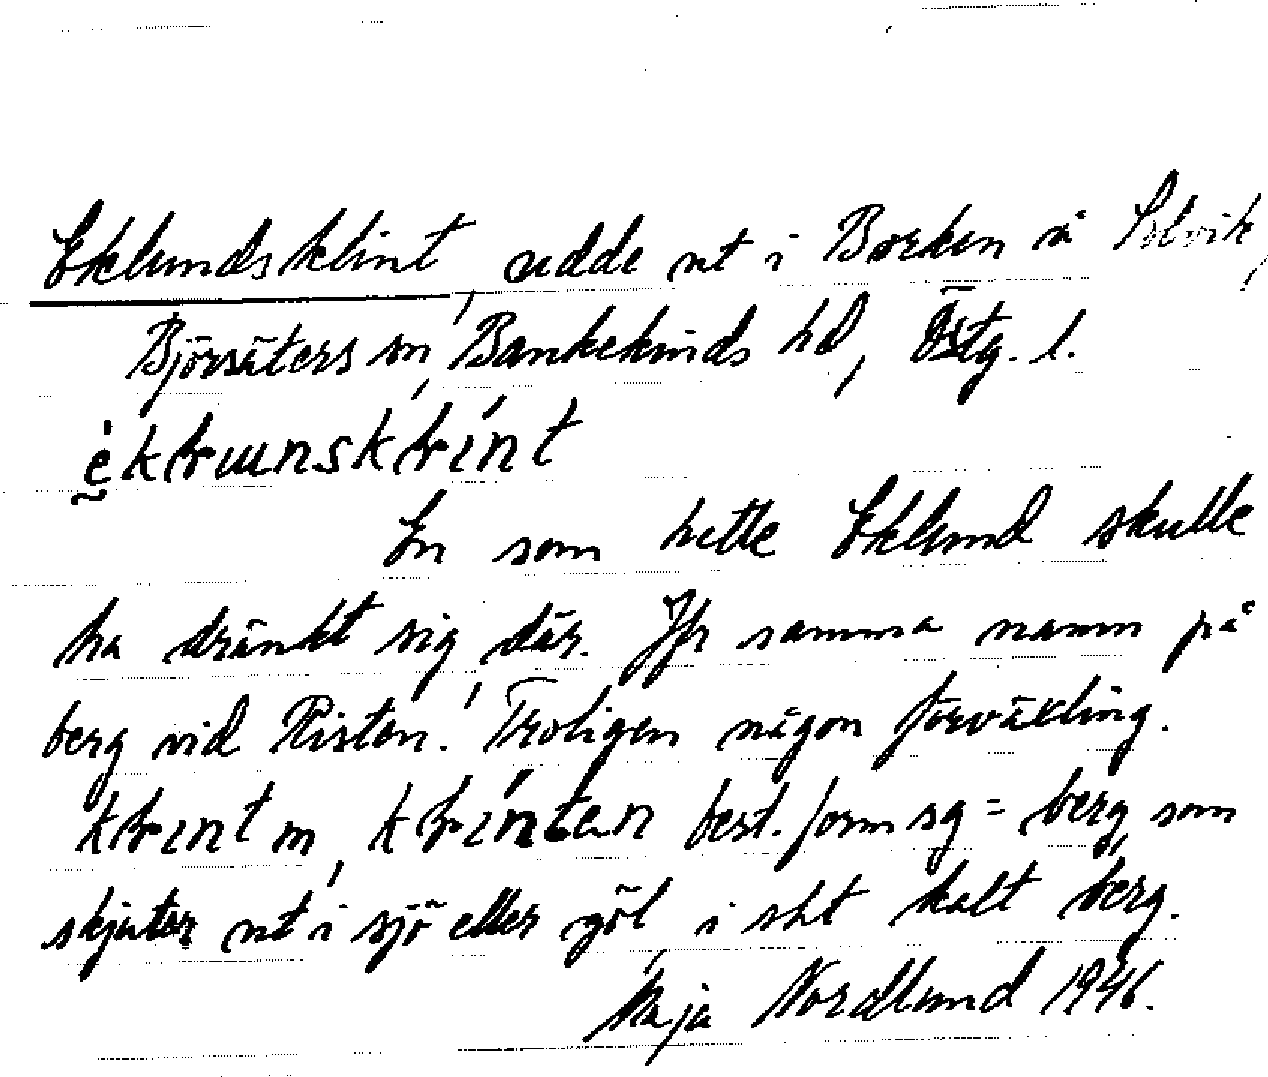 Eklundsklint, udde ut i Borken å Solvik,
Björsäters sn, Bankekinds hd, Östg. l.
En som hette Eklund skulle
ha dränkt sig där. Jfr samma namn på
berg vid Risten. Troligen någon förväxling.
m, best. form sg = berg, som
skjuter ut i sjö eller göl, i sht kalt berg.
Maja Nordlund 1946.